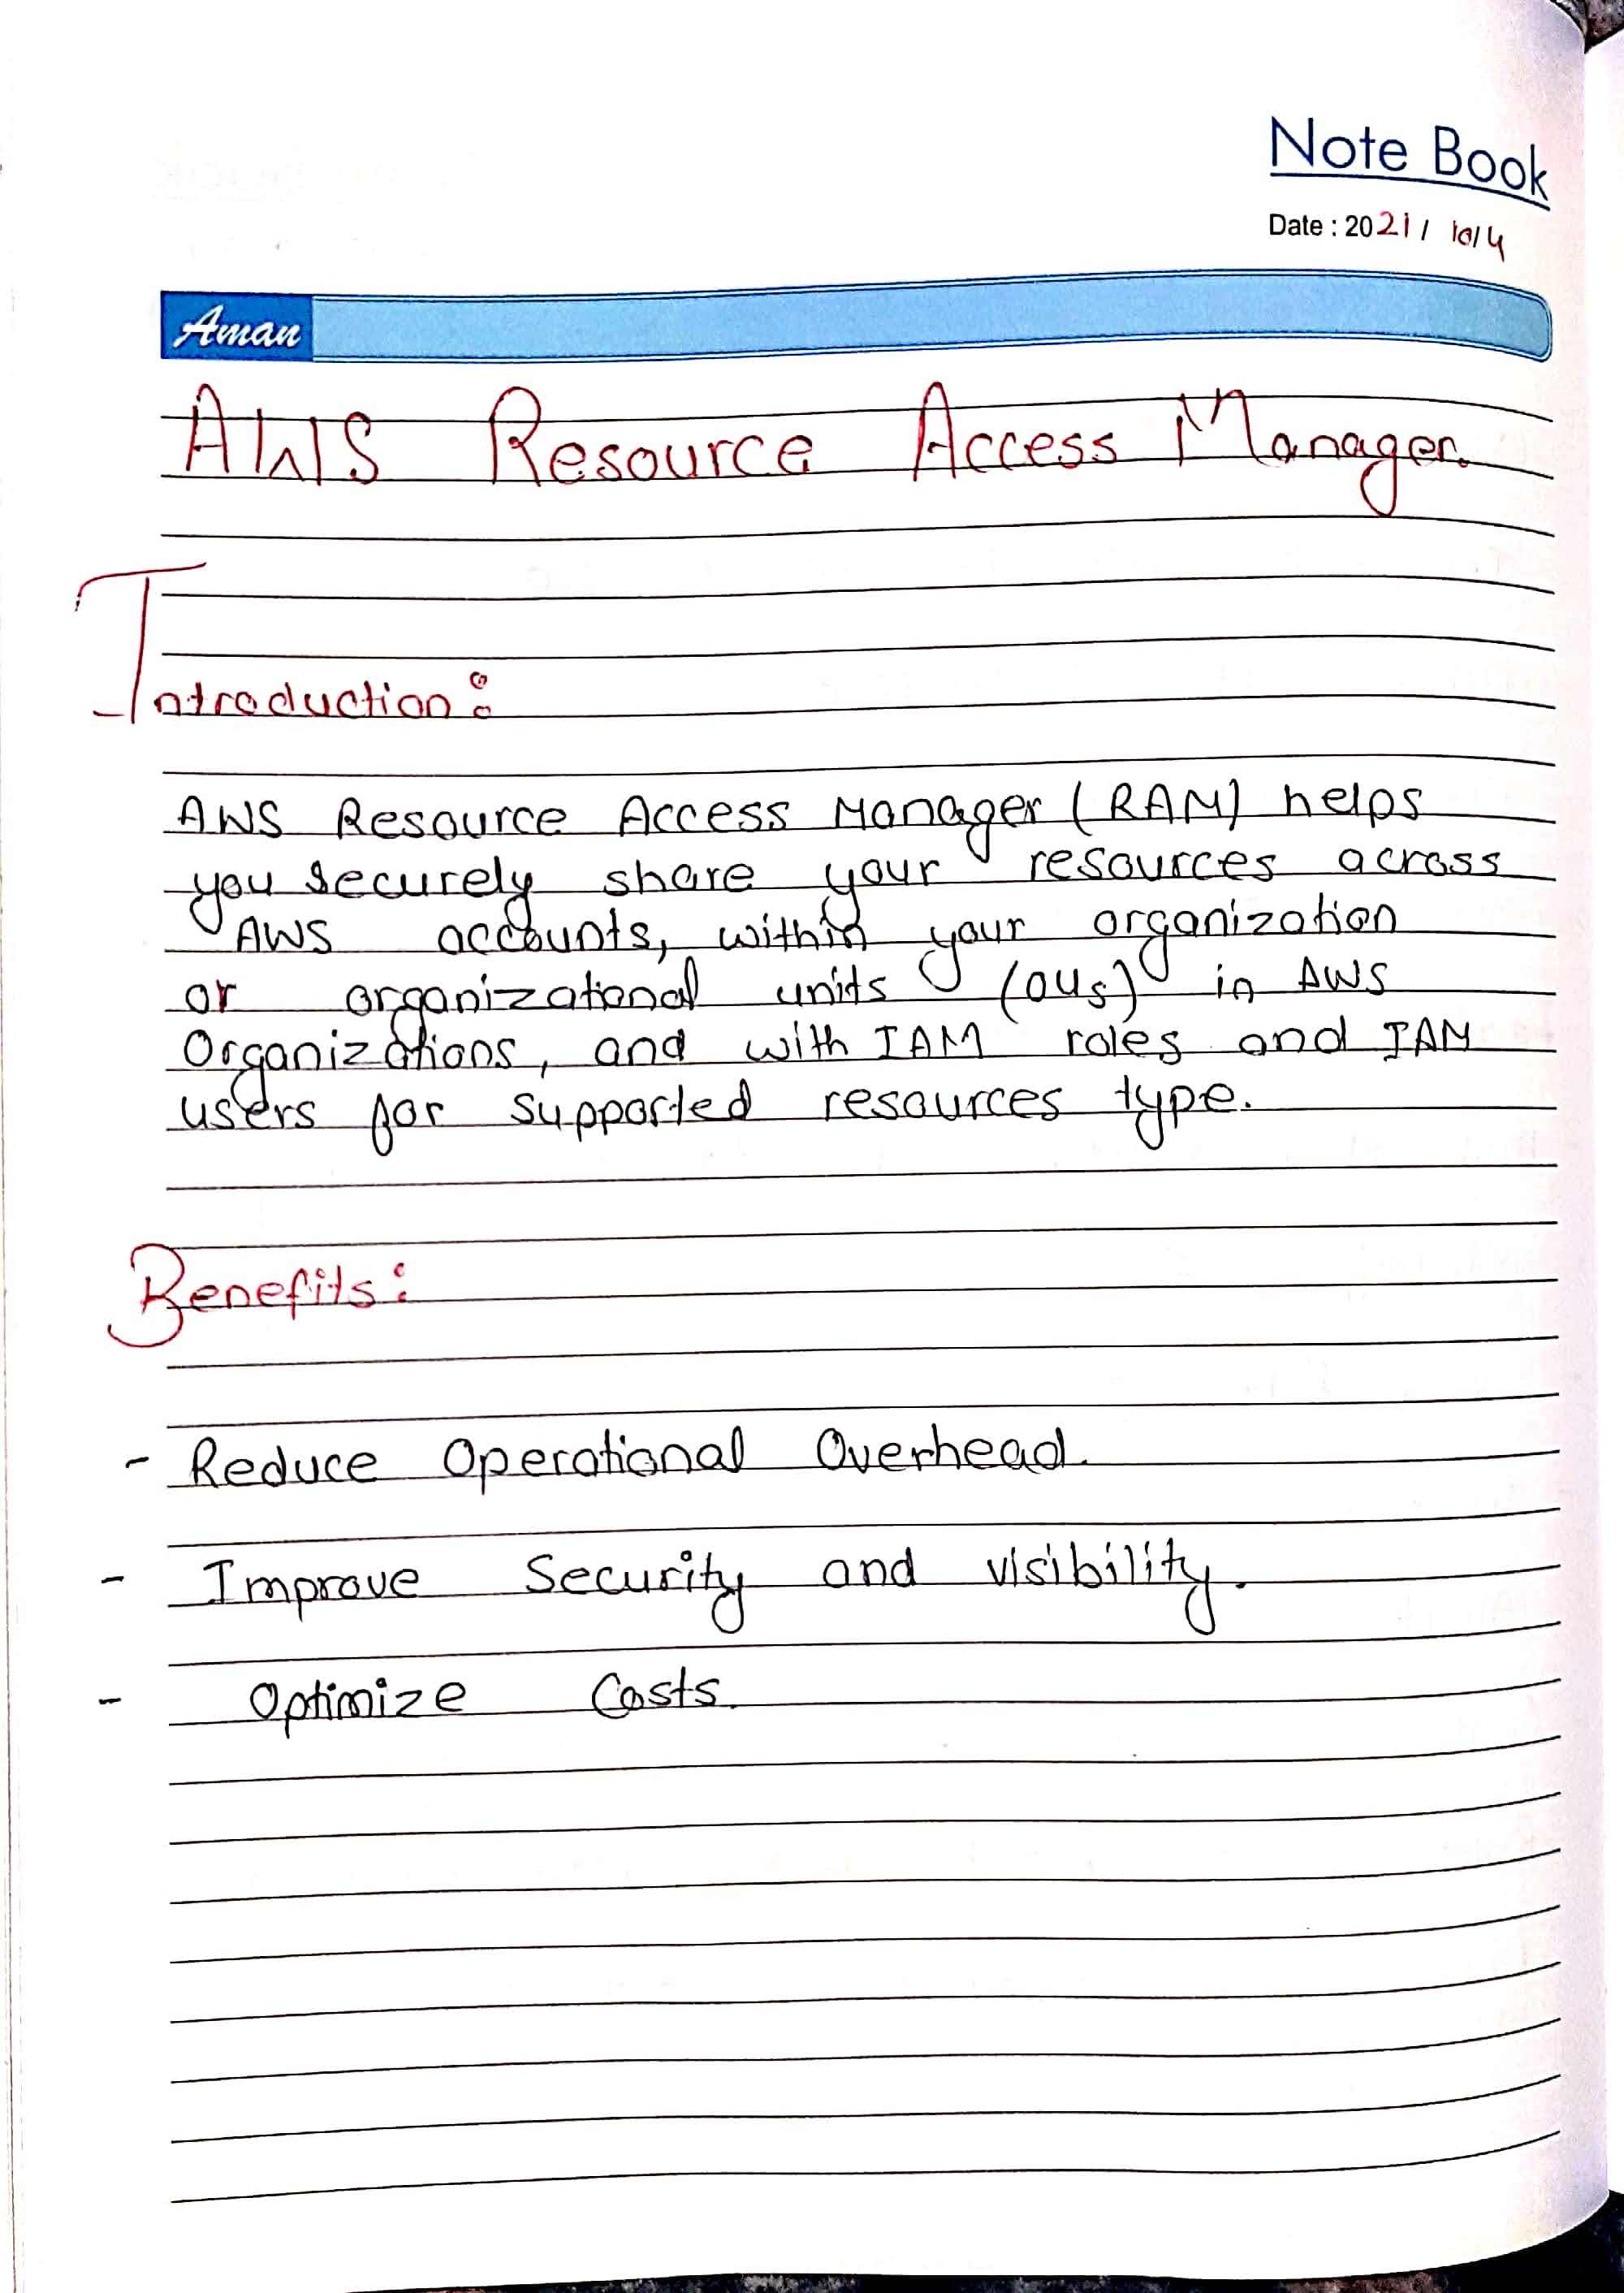 Note Book
Date : 2021 / 10/4
Aman
AWS Resource Access Manager.
Introduction:
AWS Resource Access Manager (RAM) helps
you securely share your resources across
AWS accounts, within your organization
or organizational units (OUs) in AWS
Organizations, and with IAM roles and IAM
users for supported resources type.
Benefits:
- Reduce Operational Overhead.
- Improve Security and visibility.
- Optimize Costs.